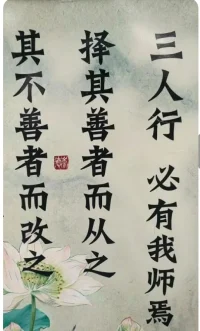 三人行 必有我师焉
择其善者而从之
其不善者而改之